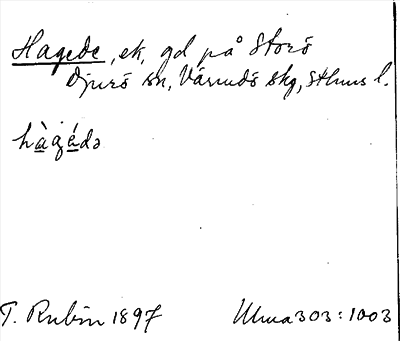 Hagede, ek, gd på Storö
Djurö sn, Värmdö skg, Sthms l.
hàgédə
T. Rubin 1897 Ulma 303:1003